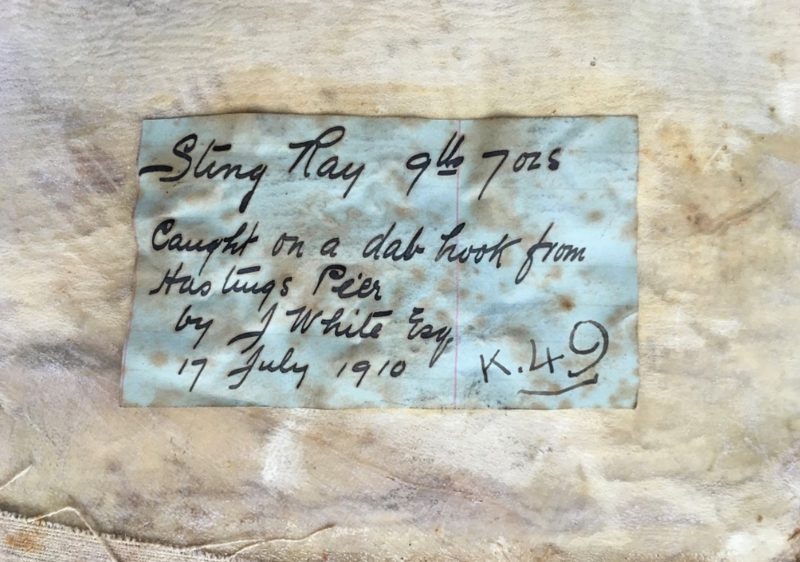 Sting Ray 9lbs 7ozs
Caught on a dab hook from
Hastings Pier
by J White Esq
17 July 1910
K.49